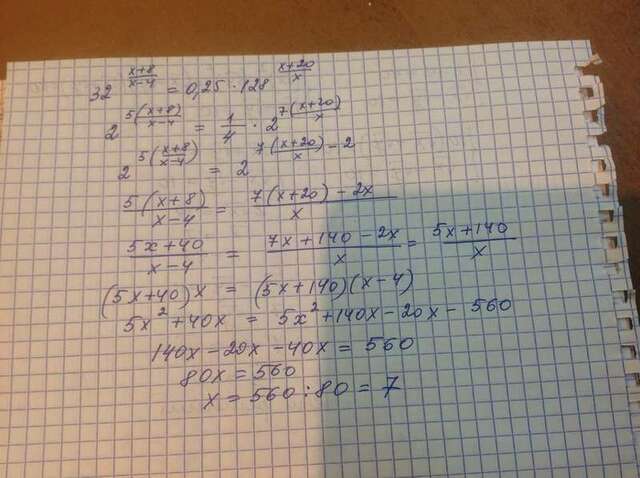 32^((x+8)/(x-4)) = 0,25 · 128^((x+20)/x)
2^(5(x+8)/(x-4)) = 1/4 · 2^(7(x+20)/x)
2^(5(x+8)/(x-4)) = 2^(7(x+20)/x - 2)
5(x+8)/(x-4) = (7(x+20) - 2x)/x
(5x+40)/(x-4) = (7x+140-2x)/x = (5x+140)/x
(5x+40)x = (5x+140)(x-4)
5x² + 40x = 5x² + 140x - 20x - 560
140x - 20x - 40x = 560
80x = 560
x = 560 : 80 = 7